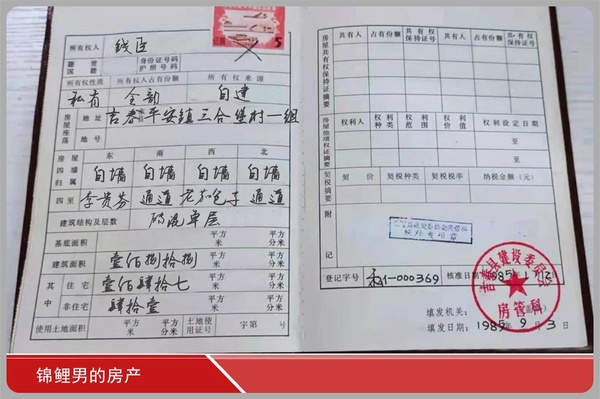 所有权人
籍贯
国籍
身份证号码
护照号码
所有权性质 所有权人占有份额 所有权来源
私有 全部 自建
房屋座落
地址 平安镇三合堡村一组
地号
房屋四墙归属
东 南 西 北
自墙 自墙 自墙 自墙
四至 李贵芬 通道 通道
建筑结构及层数 砖混单层
基底面积 平方米 平方分米
建筑面积 壹佰捌拾捌 平方米 平方分米
其中
住宅 壹佰肆拾七 平方米 平方分米
非住宅 肆拾壹 平方米 平方分米
使用土地面积 平方米 平方分米 土地使用证号 字第 号
房屋共有权保持证摘要
共有人 占有份额 共有权保持证号 共有人 占有份额 共有权保持证号
房屋他项权证摘要
权利人 权利种类 权利范围 权利价值 权利设定日期
至
至
契税摘要
契价 契税种类 契税税率 纳税金额(元)
附记
登记字号 私1-000369 核准日期
建设委员会
房管科
填发机关:
填发日期:1985年9月3日
锦鲤男的房产